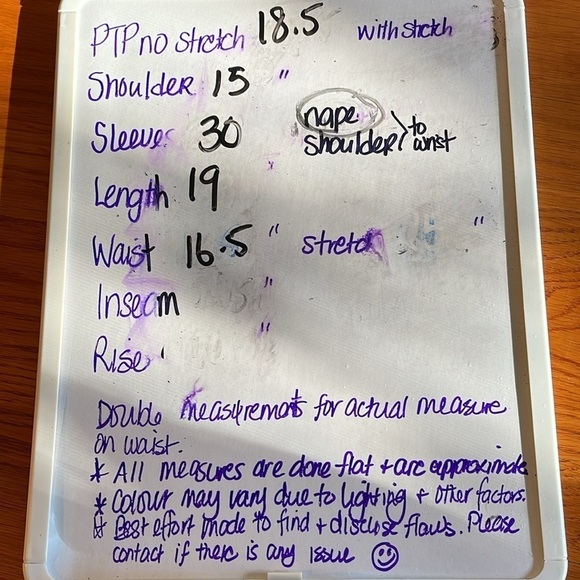 PTP no stretch 18.5 with stretch
Shoulder 15 "
Sleeves 30 nape
shoulder to wrist
Length 19 "
Waist 16.5 " stretch "
Inseam "
Rise "
Double measurements for actual measure
on waist.
* All measures are done flat + are approximate
* Colour may vary due to lighting + other factors.
* Best effort made to find + disclose flaws. Please
contact if there is any issue ☺